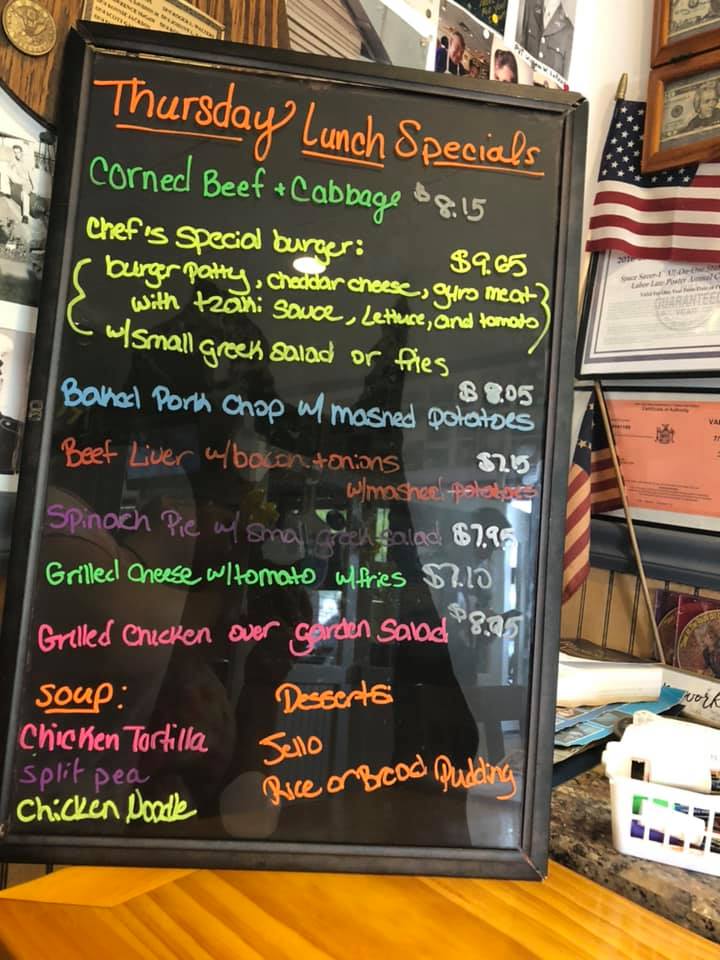 Thursday Lunch Specials
Corned Beef + Cabbage $8.15
Chef's special burger: $9.65
{ burger patty, cheddar cheese, gyro meat }
with tzaki sauce, Lettuce, and tomato
w/small greek salad or fries
$8.05
Baked Pork Chop w/ mashed potatoes
Beef Liver w/bacon + onions $7.15
w/mashed potatoes
Spinach Pie w/ small greek salad $7.95
Grilled Cheese w/tomato w/fries $7.10
$8.95
Grilled Chicken over garden Salad
Soup: Desserts
Chicken Tortilla Jello
Split pea Rice or Bread Pudding
Chicken Noodle
Space Saver-1 All-On-One
Labor Law Poster
GUARANTEED
Certificate of Authority
work